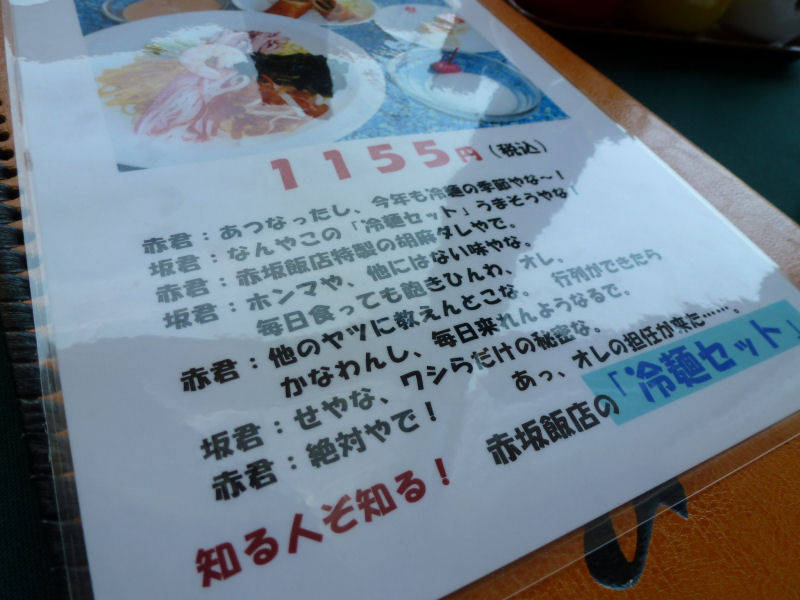 1155円（税込）
赤君：あつなったし、今年も冷麺の季節やな～！
坂君：なんやこの「冷麺セット」うまそうやな！
赤君：赤坂飯店特製の胡麻ダレやで。
坂君：ホンマや、他にはない味やな。
毎日食っても飽きひんわ、オレ。
赤君：他のヤツに教えんとこな。　行列ができたら
かなわんし、毎日来れんようなるで。
坂君：せやな、ワシらだけの秘密な。
赤君：絶対やで！　あっ、オレの担任が来た……。
知る人ぞ知る！　赤坂飯店の「冷麺セット」